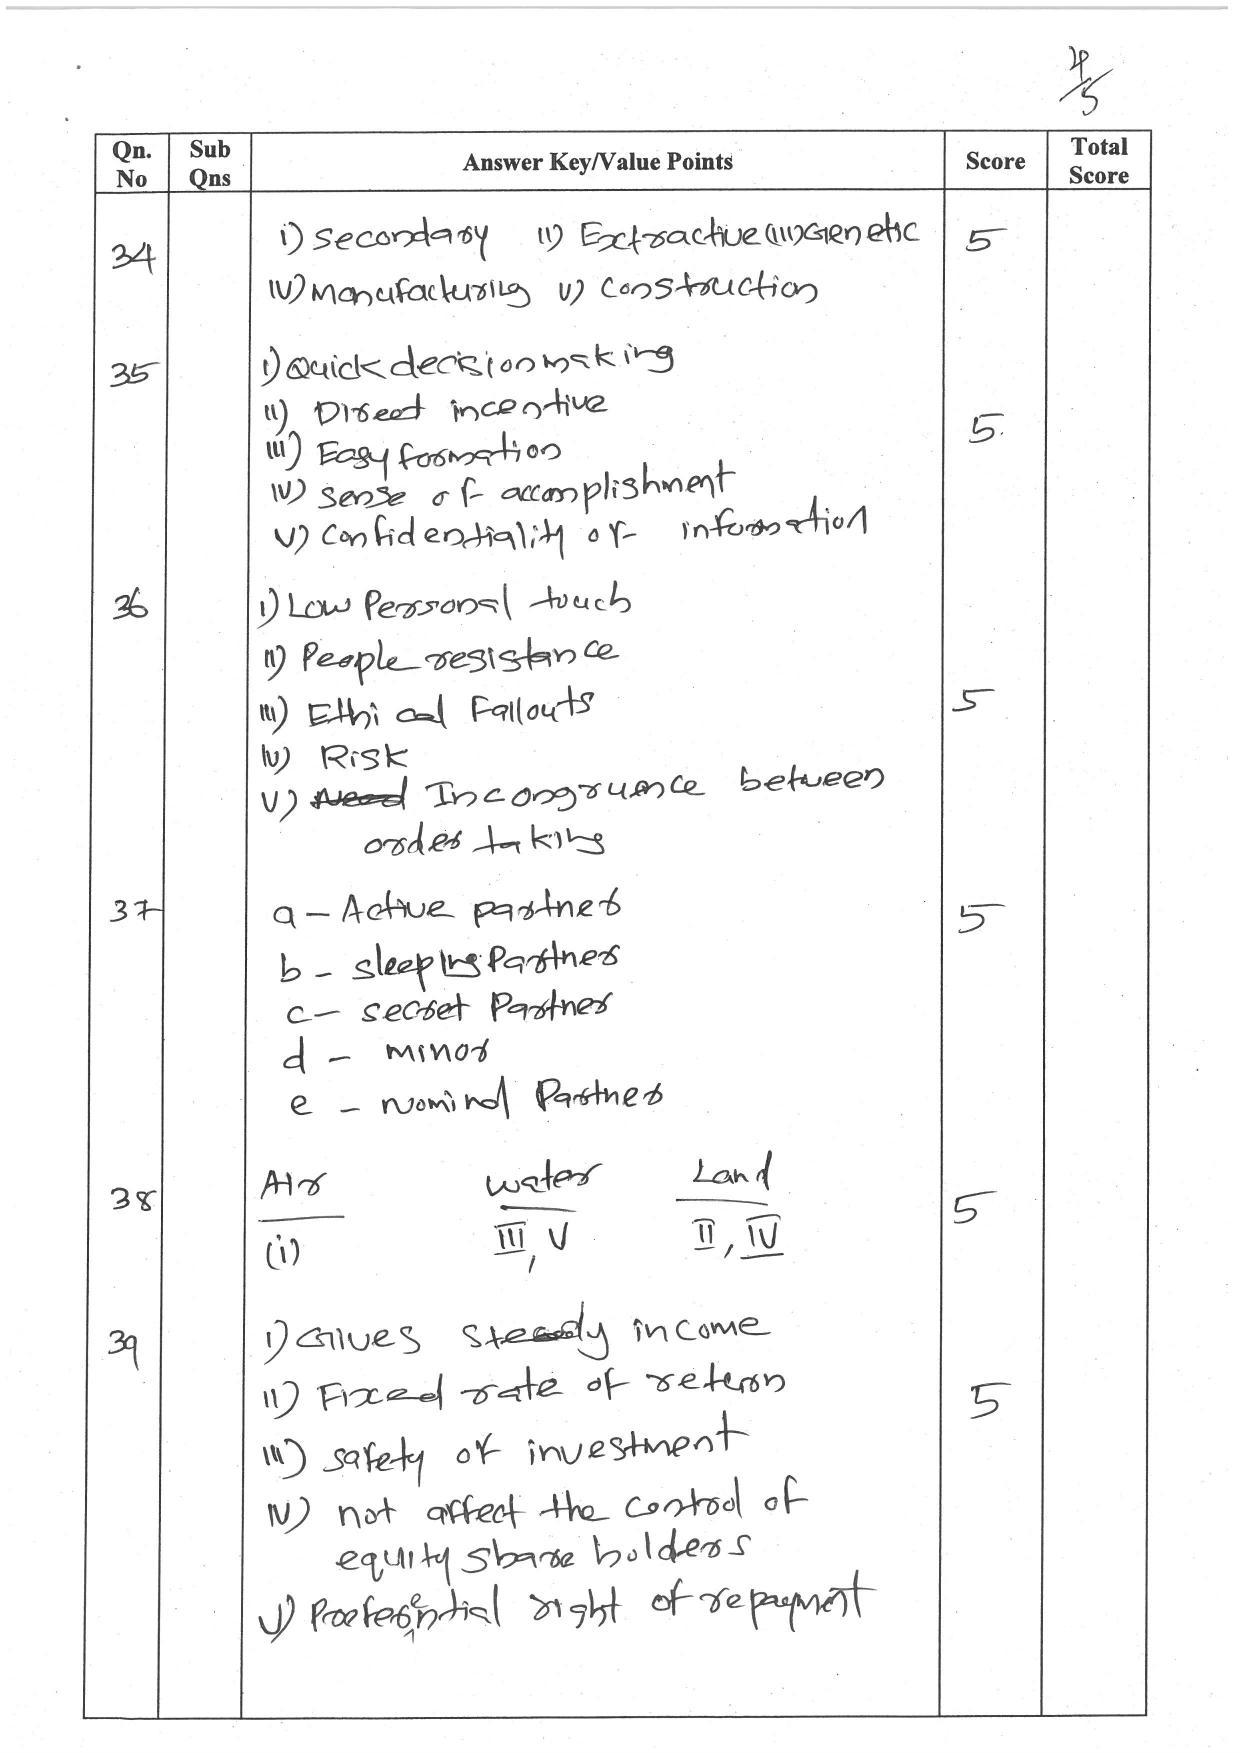 4/5
Qn. No Sub Qns Answer Key/Value Points Score Total Score
34 i) Secondary ii) Extractive (iii) Genetic 5
iv) Manufacturing v) Construction
35 i) Quick decision making
ii) Direct incentive 5.
iii) Easy formation
iv) Sense of accomplishment
v) Confidentiality of information
36 i) Low Personal touch
ii) People resistance
iii) Ethical Fallouts 5
iv) Risk
v) Need Incongruence between
order taking
37 a – Active partner 5
b – sleeping Partner
c – secret Partner
d – minor
e – Nominal Partner
38 Air Water Land 5
(i) III, V II, IV
39 i) Gives steady income
ii) Fixed rate of return 5
iii) safety of investment
iv) not affect the control of
equity share holders
v) Preferential right of repayment